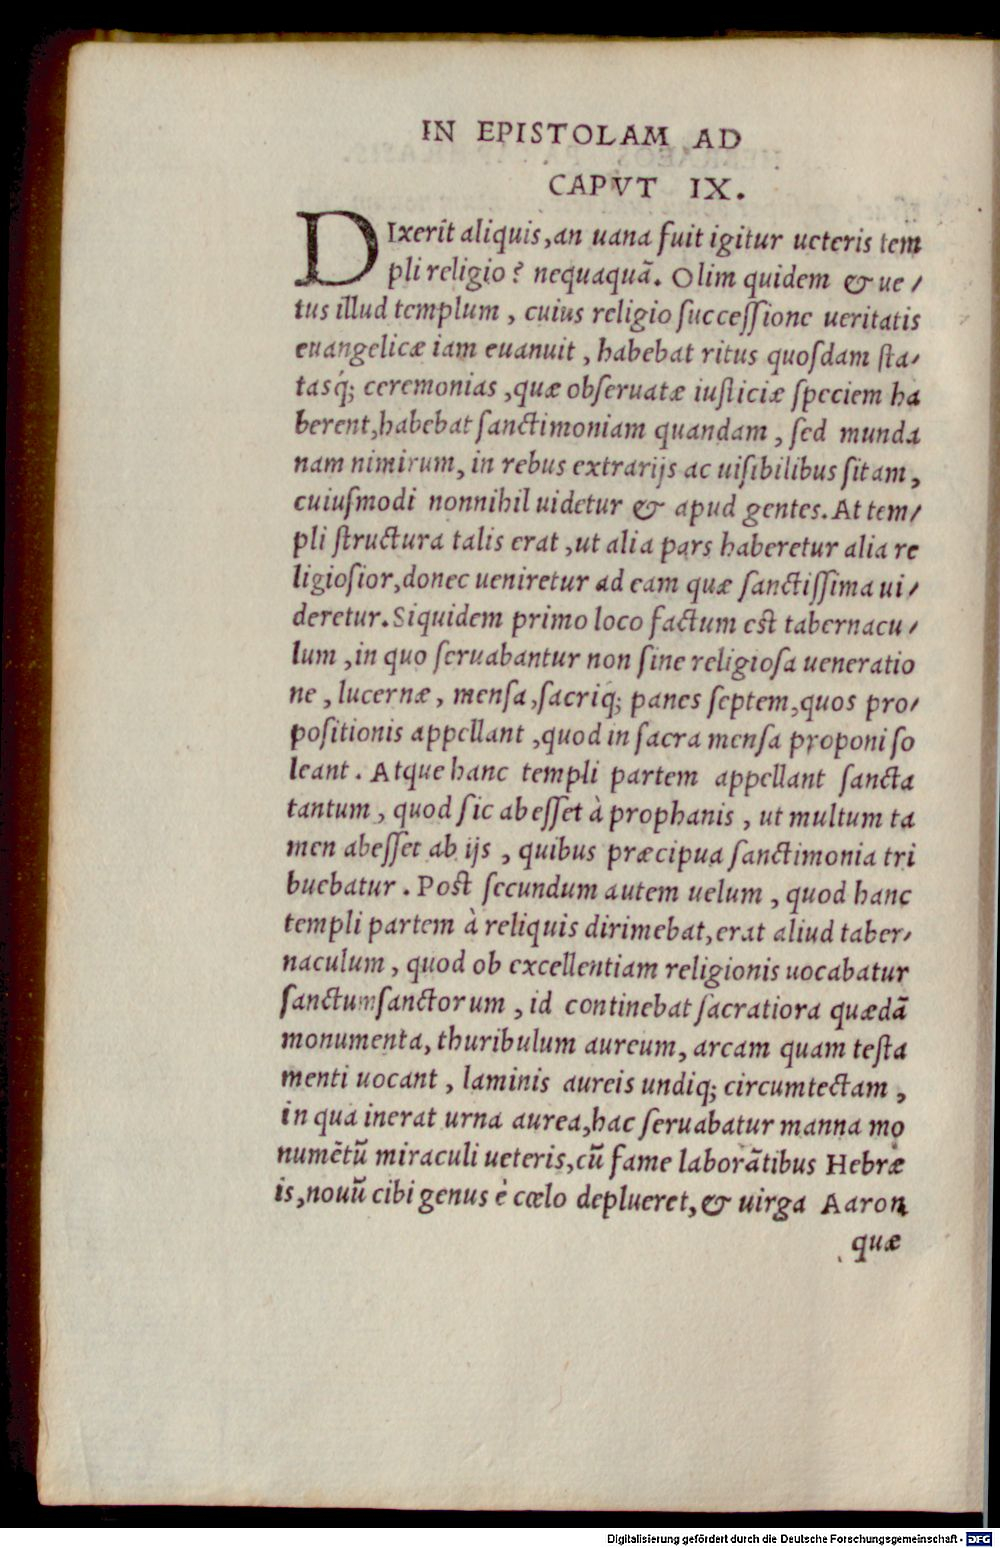 IN EPISTOLAM AD
CAPVT IX.
DIxerit aliquis, an uana fuit igitur ueteris tem
pli religio? nequaquã. Olim quidem & ue/
tus illud templum, cuius religio ſucceſſione ueritatis
euangelicæ iam euanuit, habebat ritus quoſdam ſta/
tasq́; ceremonias, quæ obſeruatæ iuſticiæ ſpeciem ha
berent, habebat ſanctimoniam quandam, ſed munda
nam nimirum, in rebus extrarijs ac uiſibilibus ſitam,
cuiuſmodi nonnihil uidetur & apud gentes. At tem/
pli ſtructura talis erat, ut alia pars haberetur alia re
ligioſior, donec ueniretur ad eam quæ ſanctiſſima ui/
deretur. Siquidem primo loco factum eſt tabernacu/
lum, in quo ſeruabantur non ſine religioſa ueneratio
ne, lucernæ, menſa, ſacriq́; panes ſeptem, quos pro/
poſitionis appellant, quod in ſacra menſa proponi ſo
leant. Atque hanc templi partem appellant ſancta
tantum, quod ſic abeſſet à prophanis, ut multum ta
men abeſſet ab ijs, quibus præcipua ſanctimonia tri
buebatur. Poſt ſecundum autem uelum, quod hanc
templi partem à reliquis dirimebat, erat aliud taber/
naculum, quod ob excellentiam religionis uocabatur
ſanctumſanctorum, id continebat ſacratiora quædã
monumenta, thuribulum aureum, arcam quam teſta
menti uocant, laminis aureis undiq; circumtectam,
in qua inerat urna aurea, hac ſeruabatur manna mo
numẽtũ miraculi ueteris, cũ fame laborãtibus Hebræ
is, nouũ cibi genus è cœlo deplueret, & uirga Aaron
quæ
Digitalisierung gefördert durch die Deutsche Forschungsgemeinschaft - DFG